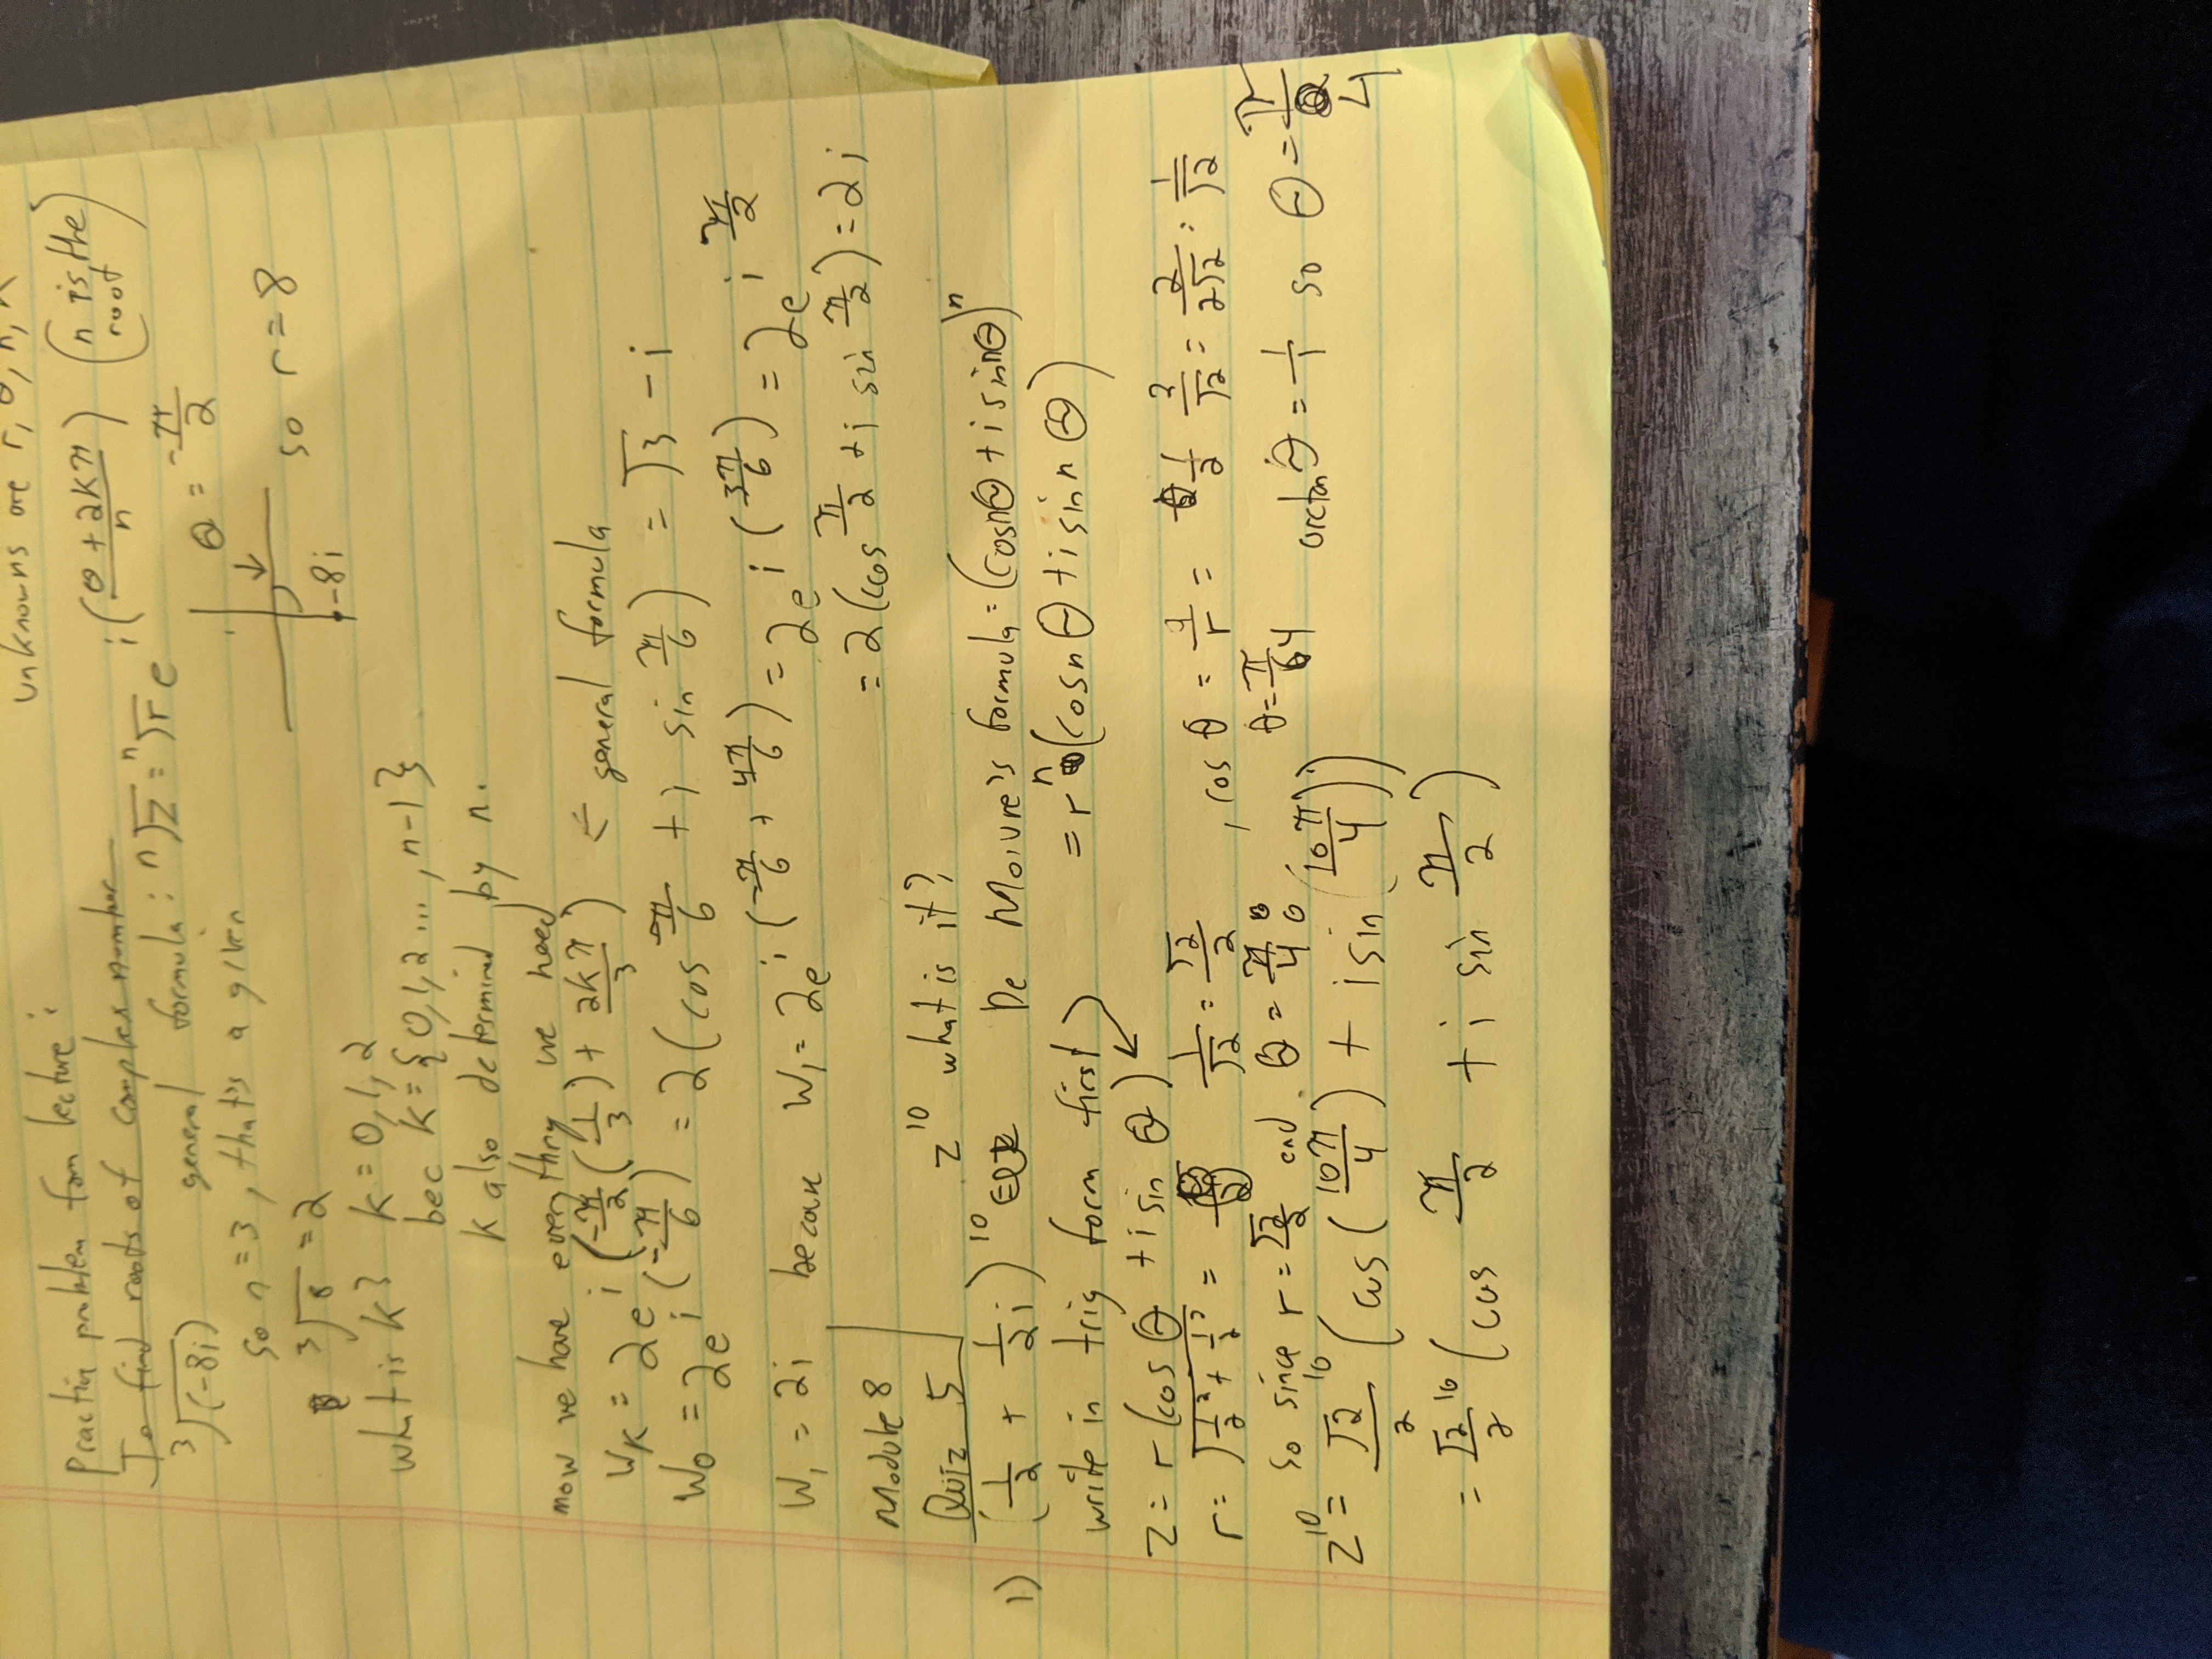 unknowns are r, θ, n, k
Practice problem from lecture:
To find roots of complex number
∛(-8i) general formula: ⁿ√z = ⁿ√r e^(i((θ+2kπ)/n)) (n is the root)
so n=3, that's a given θ = -π/2
∛8 = 2 -8i so r=8
what is k? k=0,1,2
bec k={0,1,2...,n-1}
k also determined by n.
now we have everything we need
W_k = 2e^(i(-π/2(1/3)+2kπ/3)) ← general formula
W_0 = 2e^(i(-π/6)) = 2(cos -π/6 + i sin -π/6) = √3 - i
W_1 = 2i because W_1 = 2e^(i(-π/6+4π/6)) = 2e^(i(3π/6)) = 2e^(i π/2)
= 2(cos π/2 + i sin π/2) = 2i
Module 8
Quiz 5 z^10 what is it?
1) (1/2 + 1/2 i)^10 De Moivre's formula = (cosnθ + i sinnθ)^n
write in trig form first = r^n (cosnθ + i sin nθ)
z = r(cosθ + i sinθ)
r = √(1/2² + 1/2²) = 1/√2 = √2/2, cosθ = a/r = 1/2 · 2/√2 = 2/2√2 = 1/√2
so since r = √2/2 and θ = π/4 θ = π/4 arctanθ = 1/1 so θ = π/4
z^10 = √2/2^10 (cos(10π/4) + i sin(10π/4))
= √2/2^10 (cos π/2 + i sin π/2)